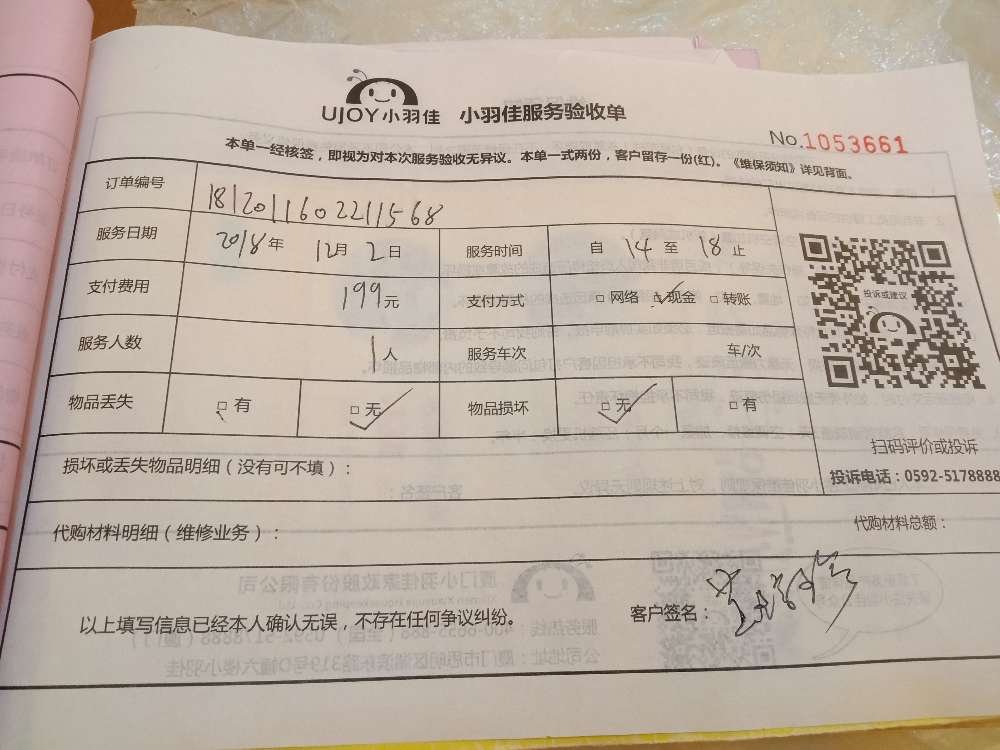 UJOY小羽佳 小羽佳服务验收单
No.1053661
本单一经核签，即视为对本次服务验收无异议。本单一式两份，客户留存一份(红)。《维保须知》详见背面。
订单编号 1812011602211568
服务日期 2018年 12月 2日 服务时间 自 14 至 18 止
投诉或建议
支付费用 199元 支付方式 □ 网络 □ 现金 □ 转账
服务人数 1人 服务车次 车/次
物品丢失 □ 有 □ 无 物品损坏 □ 无 □ 有
扫码评价或投诉
投诉电话：0592-5178888
损坏或丢失物品明细（没有可不填）：
代购材料明细（维修业务）： 代购材料总额：
以上填写信息已经本人确认无误，不存在任何争议纠纷。 客户签名：